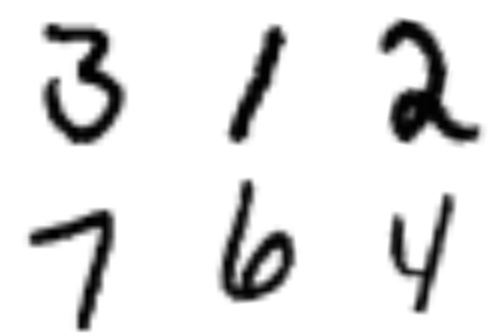 3 1 2
7 6 4